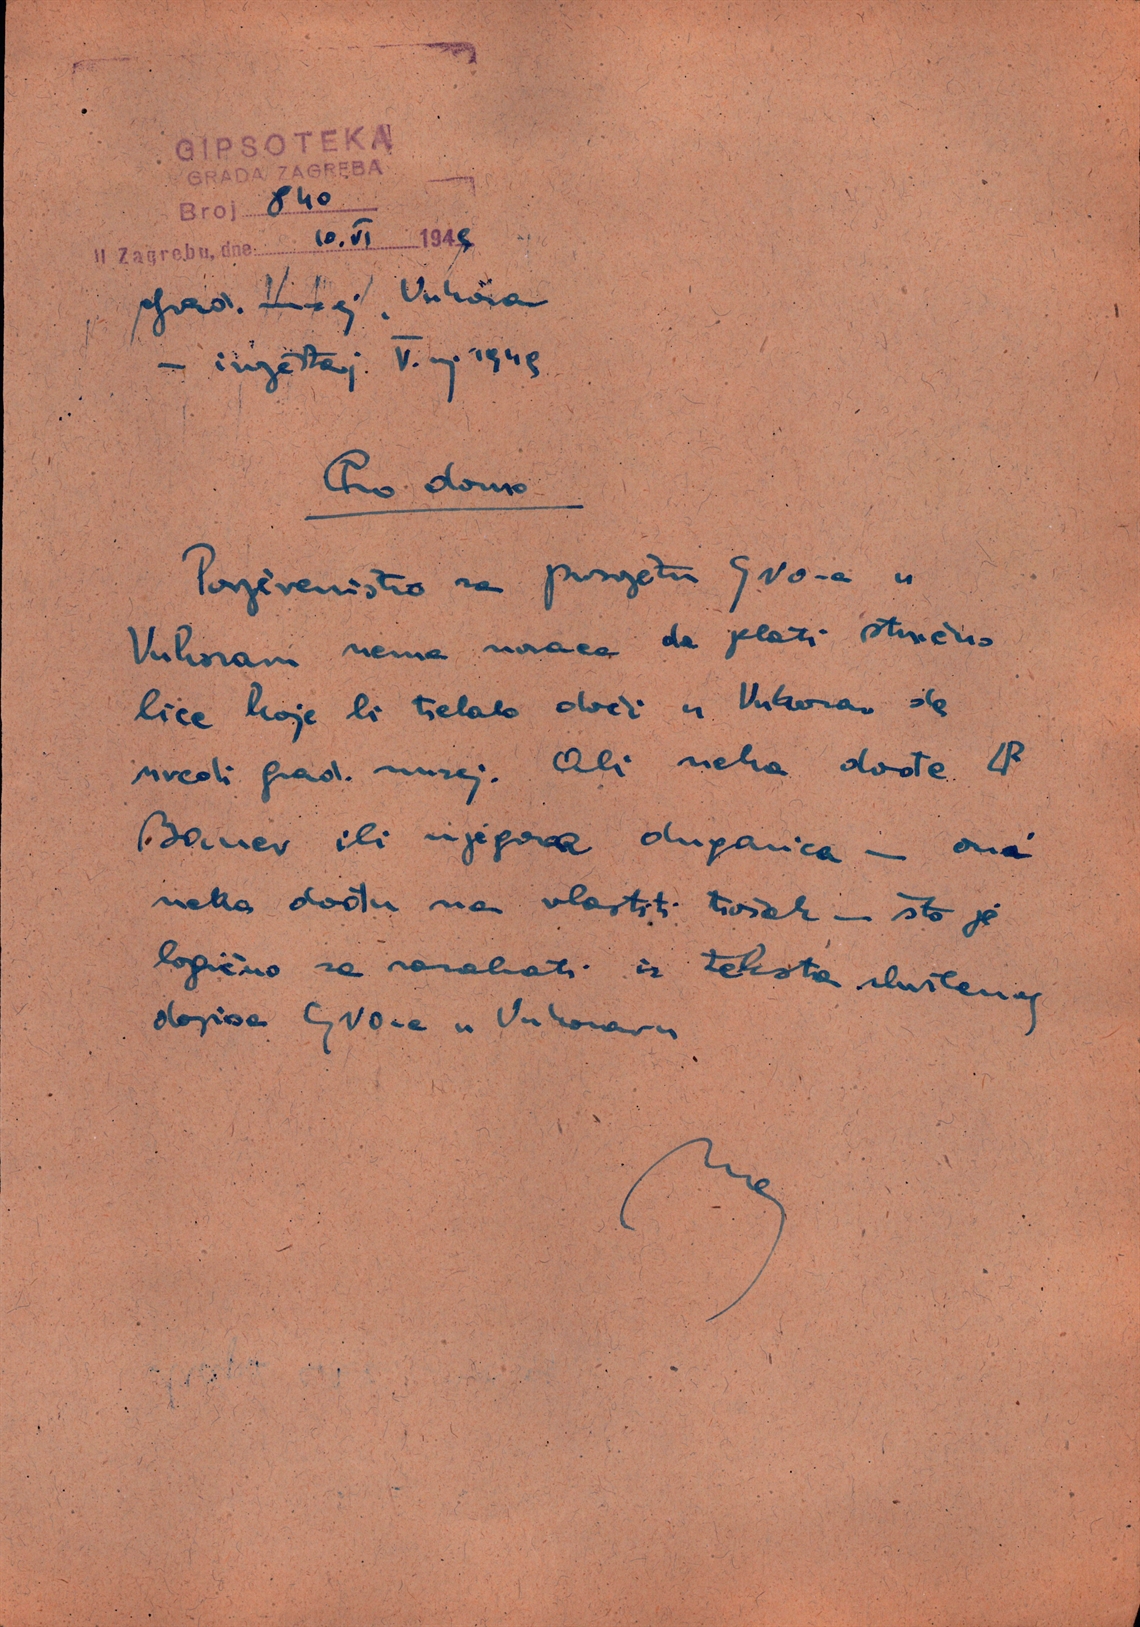 GIPSOTEKA
GRADA ZAGREBA
Broj 840
U Zagrebu, dne 10. VI 1949
Grad. muzej, Vukovar
— izvještaj. V. mj 1949
Pro domo
Povjereništvo za prosvjetu GNO-a u
Vukovaru nema novaca da plati stručno
lice koje bi trebalo doći u Vukovar da
uredi grad. muzej. Ali neka dođe
Bauer ili njegova drugarica — ona
neka dođu na vlastiti trošak — što je
logično za razabrati iz teksta služбenog
dopisa GNO-a u Vukovaru